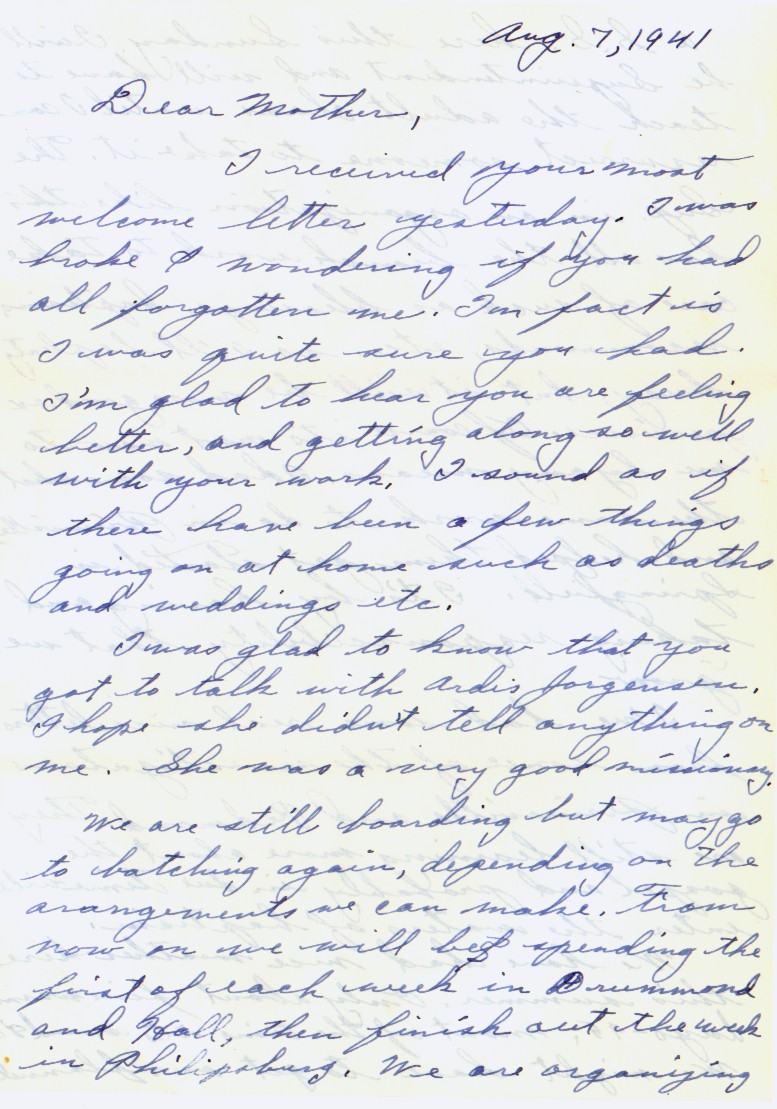 Aug. 7, 1941
Dear Mother,
I received your most
welcome letter yesterday. I was
broke & wondering if you had
all forgotten me. Im fact is
I was quite sure you had.
I'm glad to hear you are feeling
better, and getting along so well
with your work. I sound as if
there have been a few things
going on at home such as deaths
and weddings etc.
I was glad to know that you
got to talk with Ardis Jorgensen.
I hope she didn't tell anything on
me. She was a very good missionary.
We are still boarding but may go
to batching again, depending on the
arangements we can make. From
now on we will be spending the
first of each week in Drummond
and Hall, then finish out the week
in Philipsburg. We are organizing